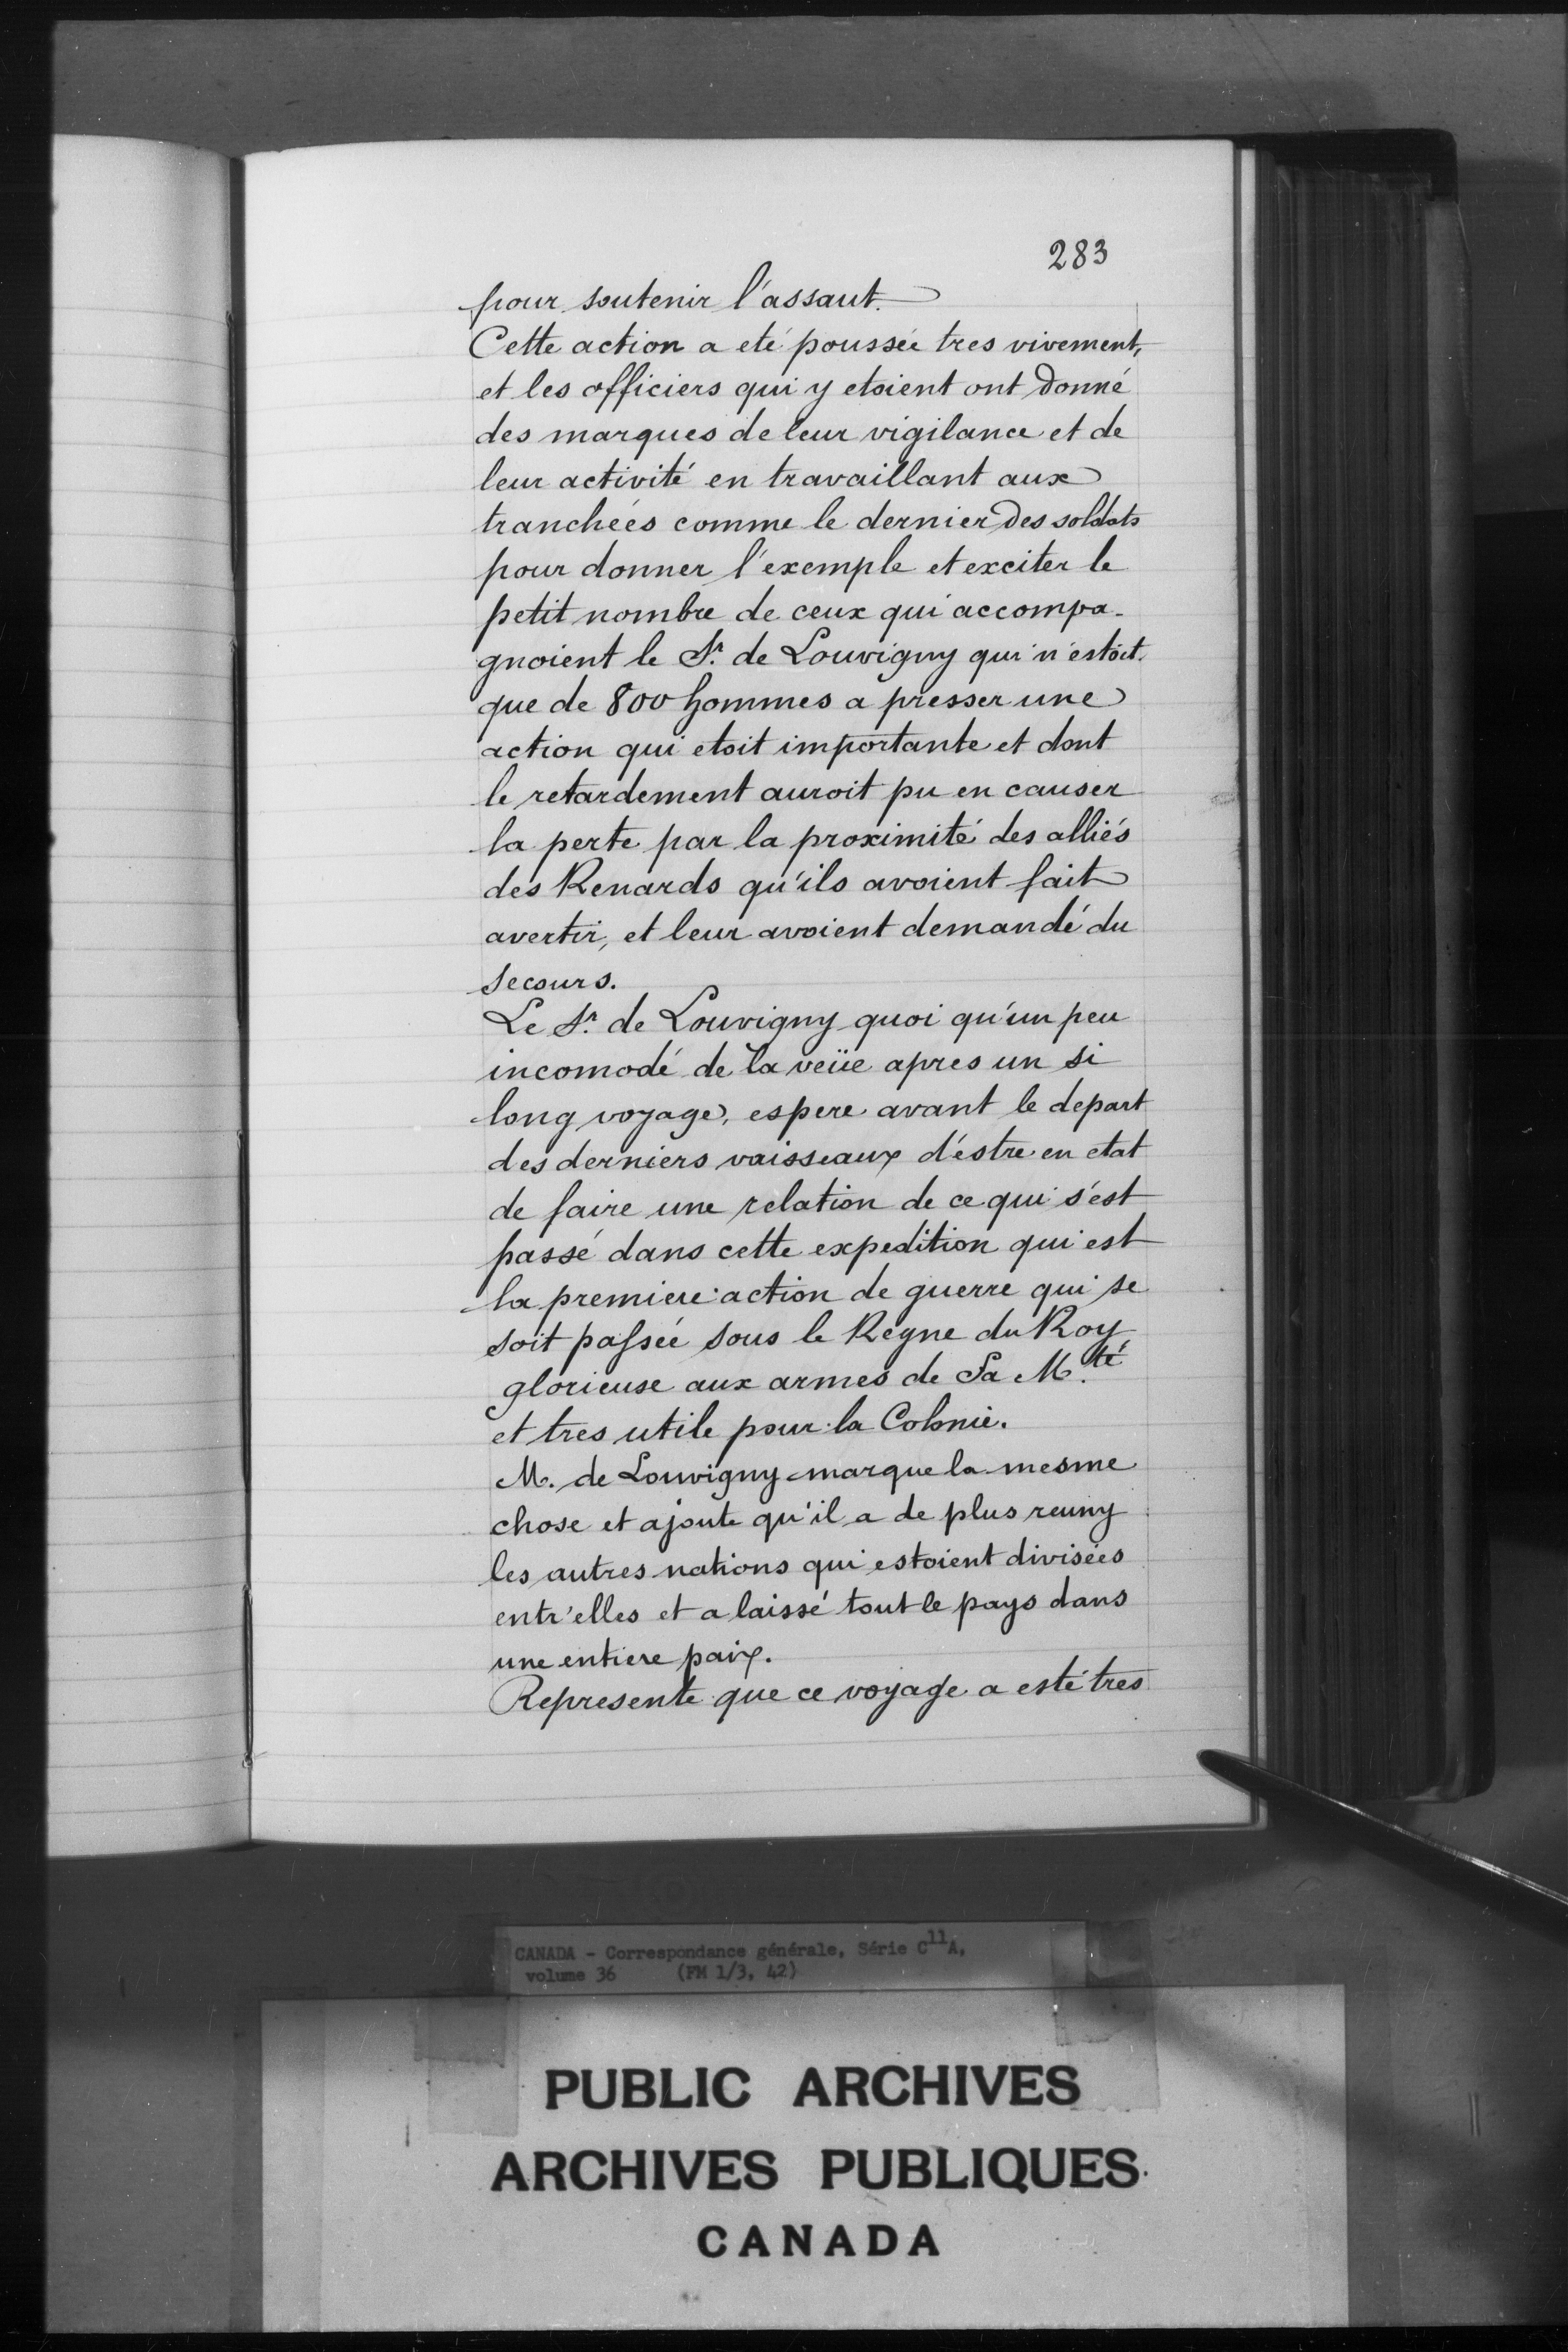 283
pour soutenir l'assaut.
Cette action a eté poussée tres vivement,
et les officiers qui y etoient ont donné
des marques de leur vigilance et de
leur activité en travaillant aux
tranchées comme le dernier des soldats
pour donner l'exemple et exciter le
petit nombre de ceux qui accompa-
gnoient le Sr. de Louvigny qui n'estoit
que de 800 hommes a presser une
action qui etoit importante et dont
le retardement auroit pu en causer
la perte par la proximité des alliés
des Renards qu'ils avoient fait
avertir, et leur avoient demandé du
secours.
Le Sr. de Louvigny quoi qu'un peu
incomodé de la veüe apres un si
long voyage, espere avant le depart
des derniers vaisseaux d'estre en etat
de faire une relation de ce qui s'est
passé dans cette expedition qui est
la premiere action de guerre qui se
soit passée sous le Regne du Roy,
glorieuse aux armes de Sa M.té
et tres utile pour la Colonie.
M. de Louvigny marque la mesme
chose et ajoute qu'il a de plus reuny
les autres nations qui estoient divisées
entr'elles et a laissé tout le pays dans
une entiere paix.
Represente que ce voyage a esté tres
CANADA - Correspondance générale, Série C11A,
volume 36 (FM 1/3, 42)
PUBLIC ARCHIVES
ARCHIVES PUBLIQUES
CANADA